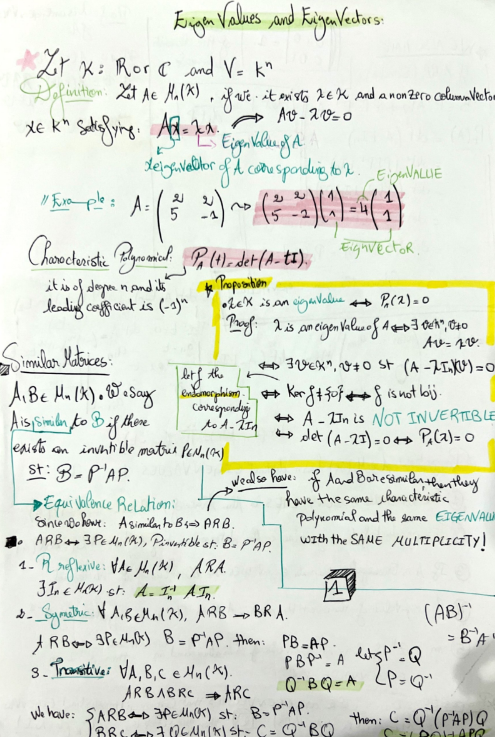 Eigen Values and EigenVectors:
Let K: R or C and V = Kⁿ
Definition: Let A∈ Mn(K), if it exists λ∈K and a nonzero column Vector
x∈ Kⁿ Satisfying: Ax = λx. → Av - λv=0
Eigen Value of A
x eigenvector of A corresponding to λ.
// Example: A = (2 2 / 5 -1) ⇝ (2 2 / 5 -1)(1 / 1) = 4(1 / 1)
EigenVALUE
EigenVECTOR
Characteristic Polynomial: P_A(t) = det(A - tI).
it is of degree n and its
leading coefficient is (-1)ⁿ
* Proposition
• λ∈K is an eigenvalue ⟺ P_A(λ) = 0
Proof: λ is an eigenValue of A ⟺ ∃ v∈Kⁿ, v≠0
Av = λv.
⟺ ∃ v∈Kⁿ, v≠0 st (A - λIn)(v) = 0
let f the
endomorphism
corresponding
to A - λIn
⟺ Ker f ≠ {0} ⟺ f is not bij.
⟺ A - λIn is NOT INVERTIBLE
⟺ det(A - λI) = 0 ⟺ P_A(λ) = 0
Similar Matrices:
A, B∈ Mn(K). We say
A is similar to B if there
exists an invertible matrix P∈Mn(K)
st: B = P⁻¹AP.
we also have: if A and B are similar then they
have the same characteristic
polynomial and the same EIGENVALU
with the SAME MULTIPLICITY!
Equivalence Relation:
Since we have: A similar to B ⟺ ARB.
• ARB ⟺ ∃P∈Mn(K), P invertible st: B = P⁻¹AP.
1
1- R reflexive: ∀A∈Mn(K), ARA
∃In∈Mn(K) st: A = In⁻¹ A In.
2- Symetric: ∀A,B∈Mn(K), ARB → BRA.
ARB ⟺ ∃P∈Mn(K) B = P⁻¹AP. then: PB = AP.
PBP⁻¹ = A
Q⁻¹BQ = A
let { P⁻¹ = Q
P = Q⁻¹
(AB)⁻¹
= B⁻¹A
3- Transitive: ∀A,B,C ∈ Mn(K).
ARB ∧ BRC ⟹ ARC
We have: { ARB ⟺ ∃P∈Mn(K) st: B = P⁻¹AP.
BRC ⟺ ∃Q∈Mn(K) st: C = Q⁻¹BQ
then: C = Q⁻¹(P⁻¹AP)Q